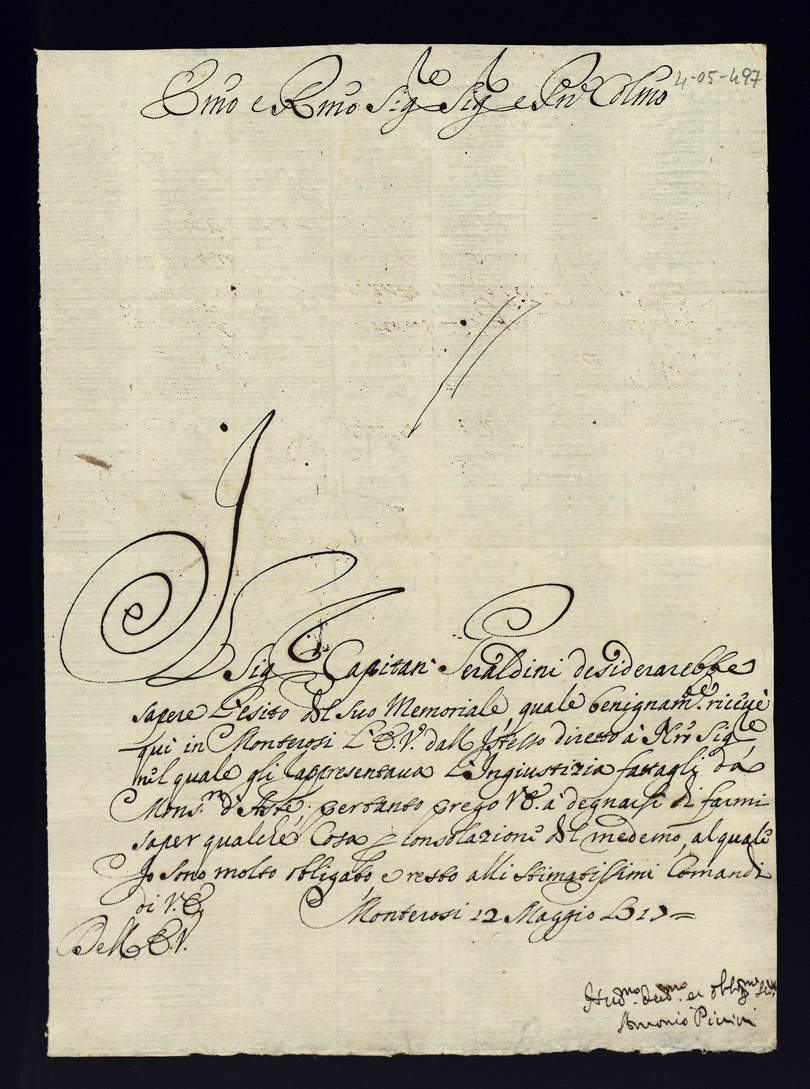 4-05-497
Emo e Rmo Sig.re Sig.re e Pne Colmo
Il Sig.r Capitan Seraldini desiderarebbe
sapere L'esito del suo Memoriale, quale benignam.te riceuè
qui in Monterosi L'E.V. dall'Istesso diretto à Nr̃o Sig.re
nel quale gli rappresentaua L'Ingiustizia fattagli da
Mons.r d'Aste; pertanto prego V.E. à degnarsi di farmi
saper qualche Cosa p consolazione del medemo, al quale
Io sono molto obligato e resto alli stimatissimi Comandi
di V.E.
Monterosi 12 Maggio
Dell'E.V.
Hu.mo deu.mo et oblig.mo
Antonio Piccini